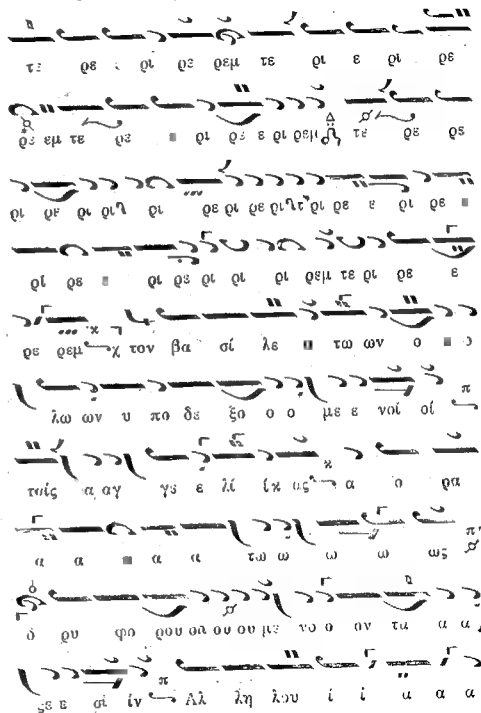 τε ρε ρι ρε ρεμ τε ρι ε ρι ρε
ρε εμ τε ρε ρι ρε ε ρι ρεμ τε ρε ρε
ρι ρε ρι ρι ρι ρε ρι ρε ρι τε ρι ρε ε ρι ρε
ρι ρε ρι ρε ρι ρι ρι ρεμ τε ρι ρε ε
ρε ρεμ χ τον βα σί λε τω ων ο ο
λω ων υ πο δε ξο ο ο με ε νοί οί π
ταίς α αγ γε ε λί ίκ ας κ α ο ρα
α α α α τω ω ω ω ως π
δ ρυ φο ρου ου ου ου με νο ο ον τα α α
ξε ε σί ίν π Αλ λη λου ί ί α α α